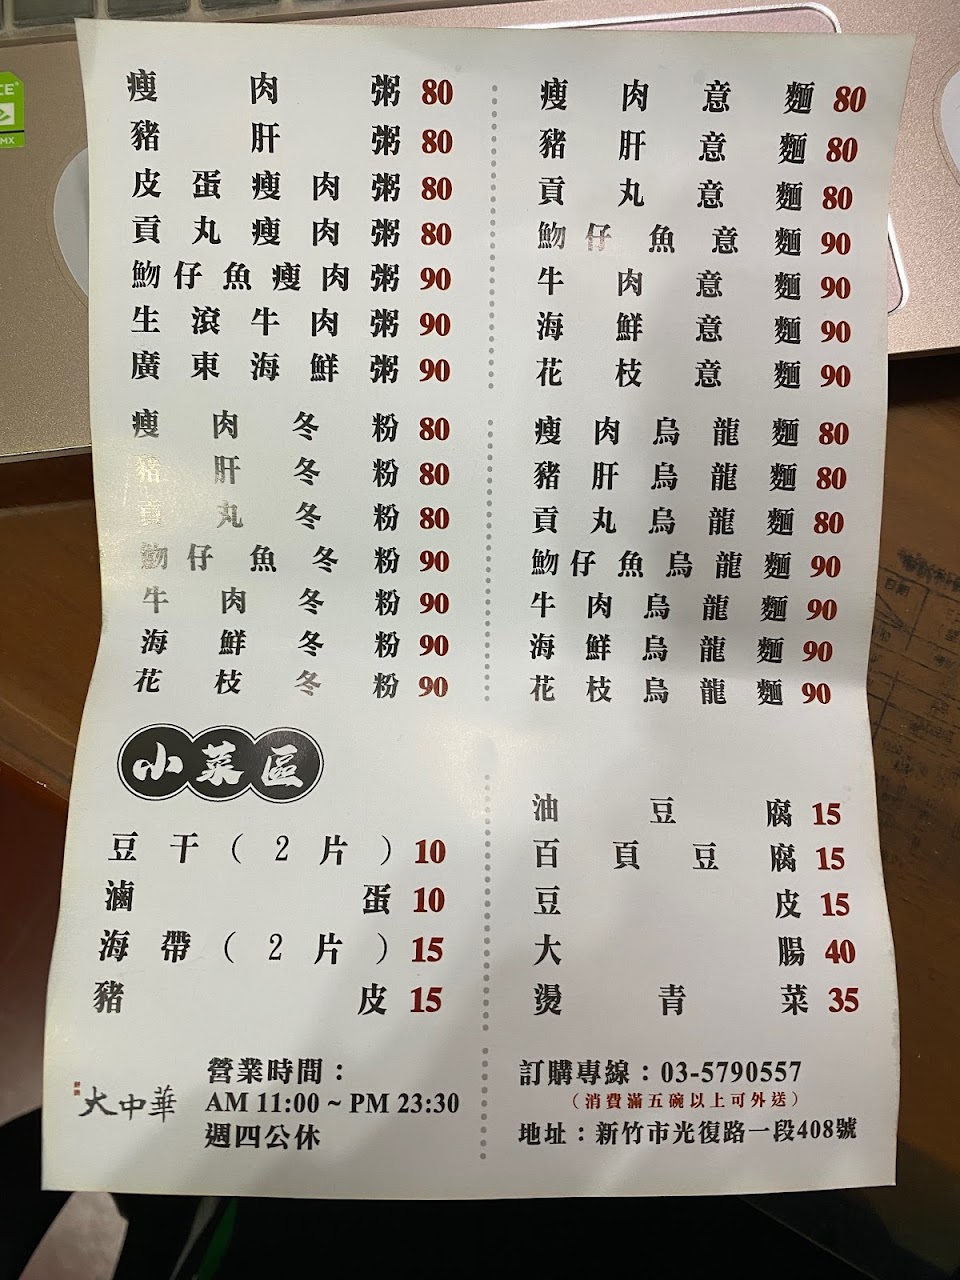 瘦肉粥 80
豬肝粥 80
皮蛋瘦肉粥 80
貢丸瘦肉粥 80
魩仔魚瘦肉粥 90
生滾牛肉粥 90
廣東海鮮粥 90
瘦肉意麵 80
豬肝意麵 80
貢丸意麵 80
魩仔魚意麵 90
牛肉意麵 90
海鮮意麵 90
花枝意麵 90
瘦肉冬粉 80
豬肝冬粉 80
貢丸冬粉 80
魩仔魚冬粉 90
牛肉冬粉 90
海鮮冬粉 90
花枝冬粉 90
瘦肉烏龍麵 80
豬肝烏龍麵 80
貢丸烏龍麵 80
魩仔魚烏龍麵 90
牛肉烏龍麵 90
海鮮烏龍麵 90
花枝烏龍麵 90
小菜區
豆干(2片) 10
滷蛋 10
海帶(2片) 15
豬皮 15
油豆腐 15
百頁豆腐 15
豆皮 15
大腸 40
燙青菜 35
大中華
營業時間：
AM 11:00 ~ PM 23:30
週四公休
訂購專線：03-5790557
(消費滿五碗以上可外送)
地址：新竹市光復路一段408號